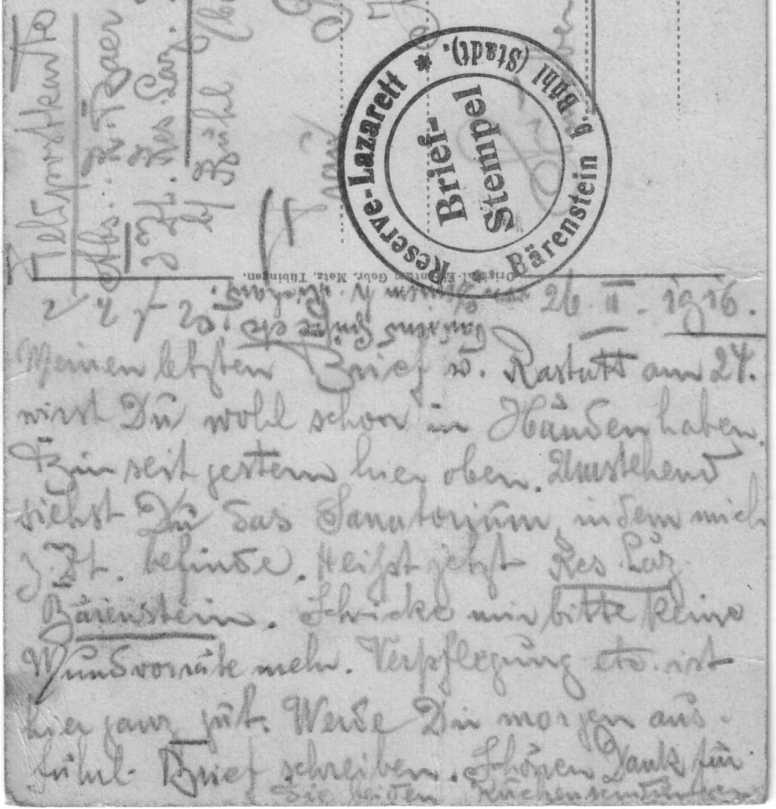 Feldpostkarte
Abs.
z. Zt. Res. Laz.
b/ Bühl
Frau
Reserve-Lazarett * Bärenstein b. Bühl (Stadt). *
Brief-
Stempel
Gebr. Metz, Tübingen.
26. II. 1916.
Meinen letzten Brief v. Rastatt am 24.
wirst Du wohl schon in Händen haben.
Bin seit gestern hier oben. Umstehend
siehst Du das Sanatorium, in dem mich
z. Zt. befinde. Heißt jetzt Res. Laz.
Bärenstein. Schicke mir bitte keine
Mundvorräte mehr. Verpflegung etc. ist
hier ganz gut. Werde Dir morgen aus-
führl. Brief schreiben. Schönen Dank für
die beiden Kuchensendungen